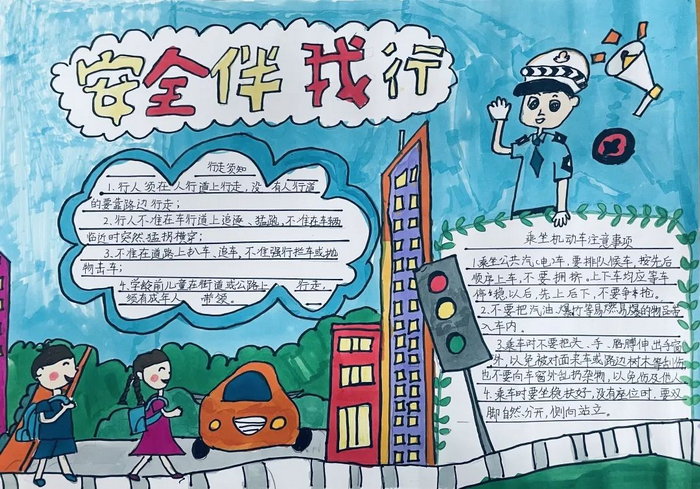 安全伴我行
行走须知
1.行人须在人行道上行走，没有人行道
的要靠路边行走；
2.行人不准在车行道上追逐、猛跑，不准在车辆
临近时突然猛拐横穿；
3.不准在道路上扒车、追车，不准强行拦车或抛
物击车；
4.学龄前儿童在街道或公路上行走，
须有成年人带领。
乘坐机动车注意事项
1.乘坐公共汽(电)车，要排队候车，按先后
顺序上车，不要拥挤。上下车均应等车
停稳以后，先上后下，不要争抢。
2.不要把汽油、爆竹等易燃易爆的物品带
入车内。
3.乘车时不要把头、手、胳膊伸出手窗
外，以免被对面来车或路边树木等刮伤
也不要向车窗外乱扔杂物，以免伤及他人
4.乘车时要坐稳扶好，没有座位时，要双
脚自然分开，侧向站立。